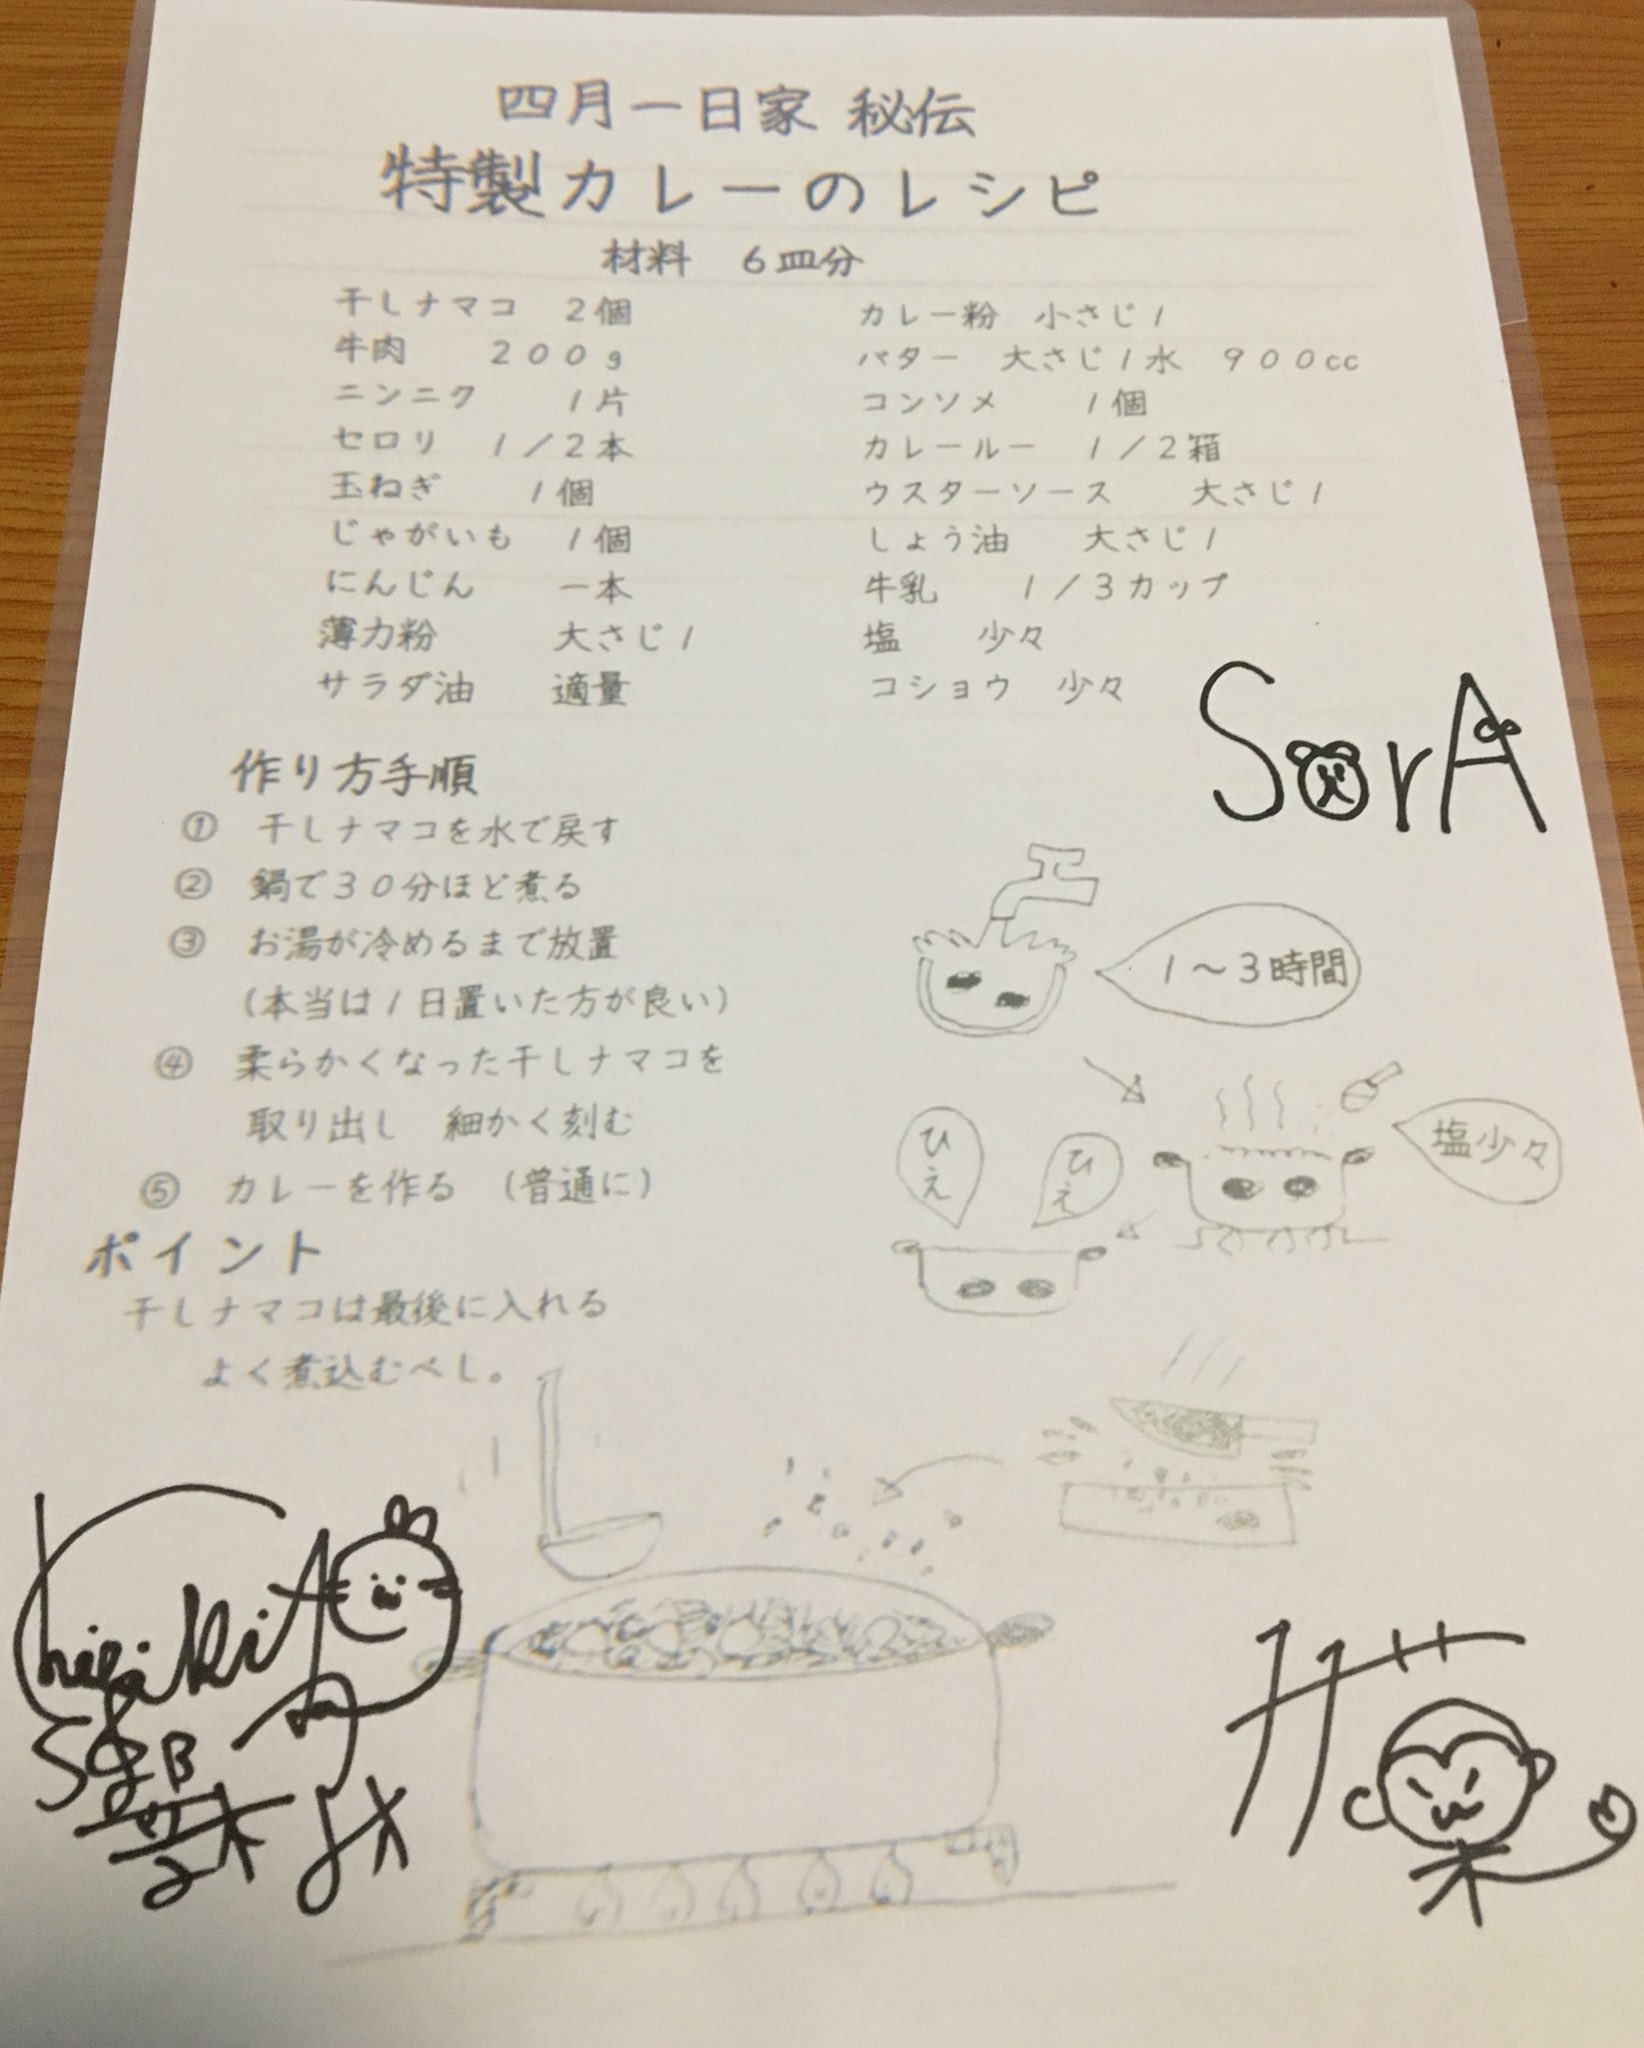 四月一日家 秘伝
特製カレーのレシピ
材料 6皿分
干しナマコ 2個
牛肉 200g
ニンニク 1片
セロリ 1/2本
玉ねぎ 1個
じゃがいも 1個
にんじん 一本
薄力粉 大さじ1
サラダ油 適量
カレー粉 小さじ1
バター 大さじ1水 900cc
コンソメ 1個
カレールー 1/2箱
ウスターソース 大さじ1
しょう油 大さじ1
牛乳 1/3カップ
塩 少々
コショウ 少々
SorA
作り方手順
① 干しナマコを水で戻す
② 鍋で30分ほど煮る
③ お湯が冷めるまで放置
(本当は1日置いた方が良い)
④ 柔らかくなった干しナマコを
取り出し 細かく刻む
⑤ カレーを作る (普通に)
1~3時間
塩少々
ひえ
ひえ
ポイント
干しナマコは最後に入れる
よく煮込むべし。